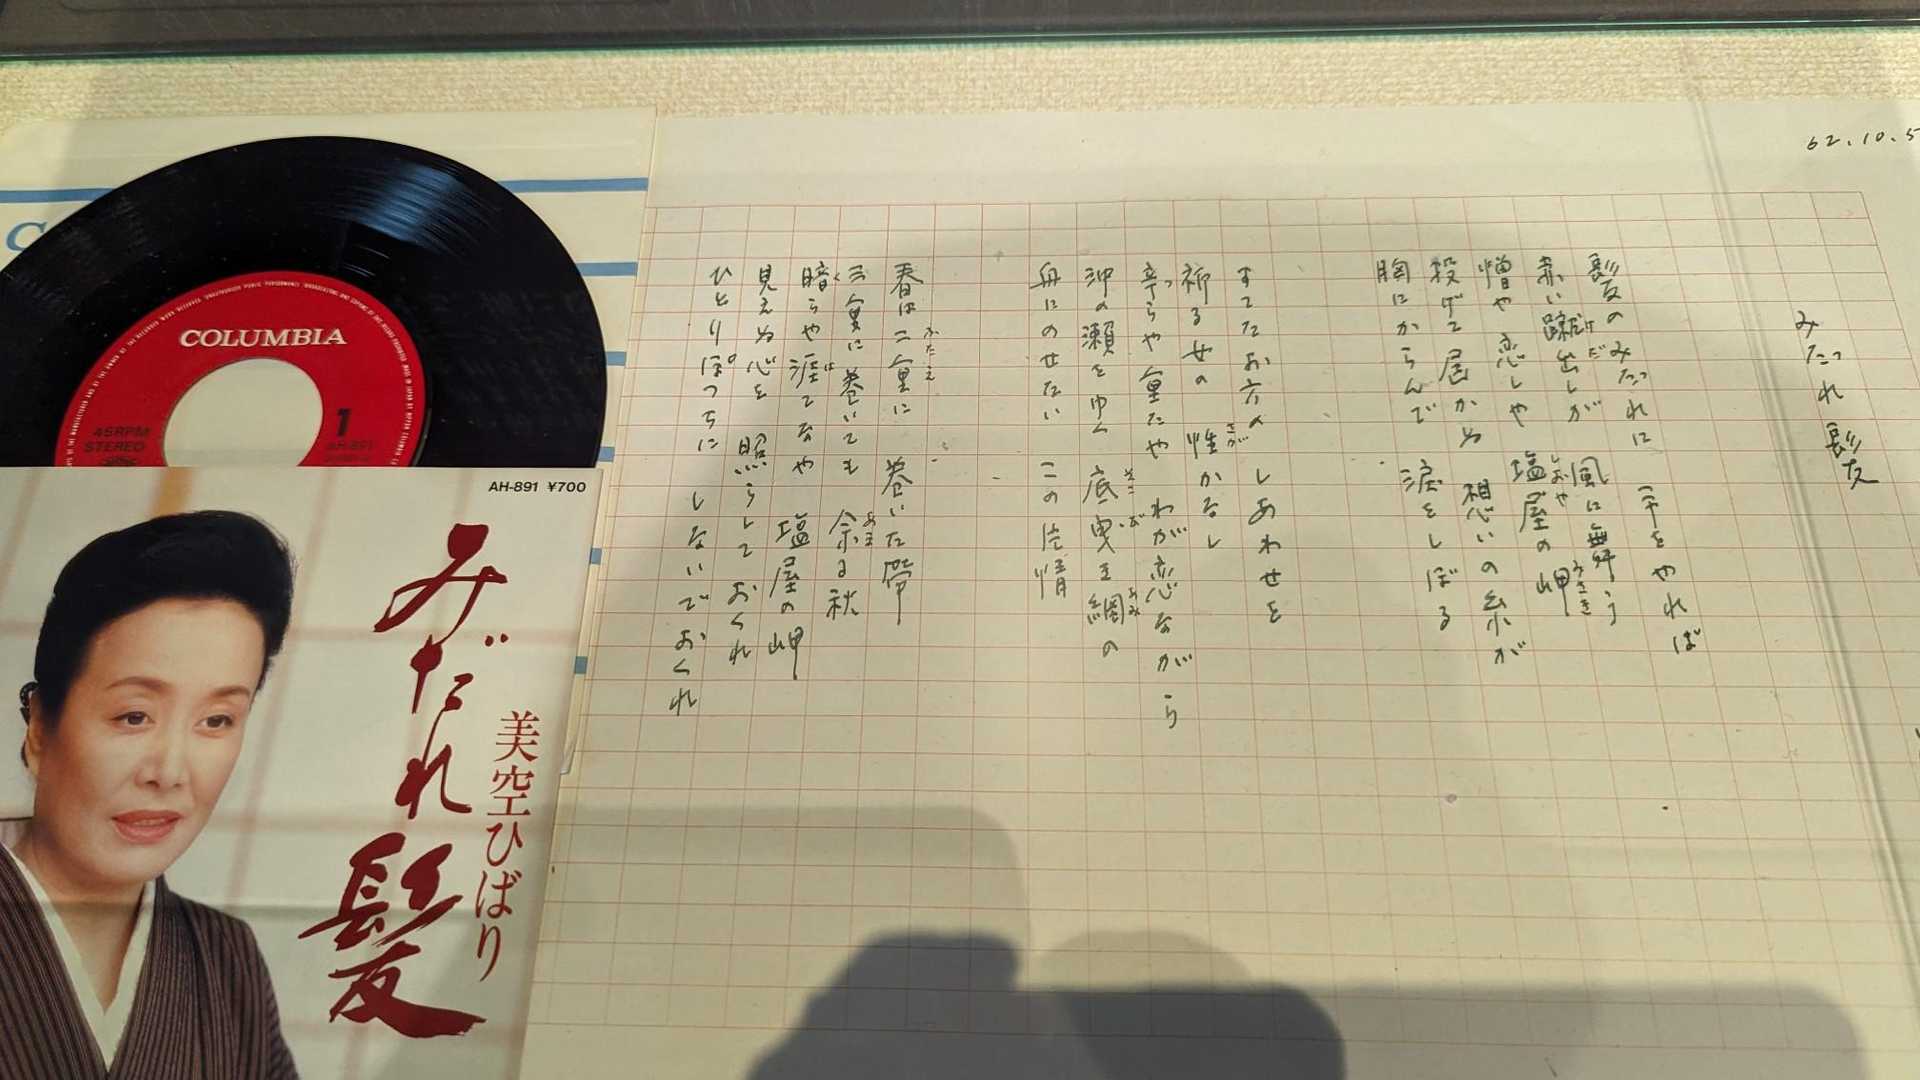 62.10.5
みだれ髪
髪のみだれに 手をやれば
赤い蹴出しが 風に舞う
憎や 恋しや 塩屋の岬
投げて届かぬ 想いの糸が
胸にからんで 涙をしぼる
すてたお方の しあわせを
祈る女の 性かなし
辛らや重たや わが恋ながら
沖の瀬をゆく 底曳き網の
舟にのせたい この片情
春は二重に 巻いた帯
三重に巻いても 余る秋
暗らや涯てなや 塩屋の岬
見えぬ心を 照らしておくれ
ひとりぼっちに しないでおくれ
COLUMBIA
45RPM
STEREO
1
AH-891
AH-891 ¥700
みだれ髪
美空ひばり